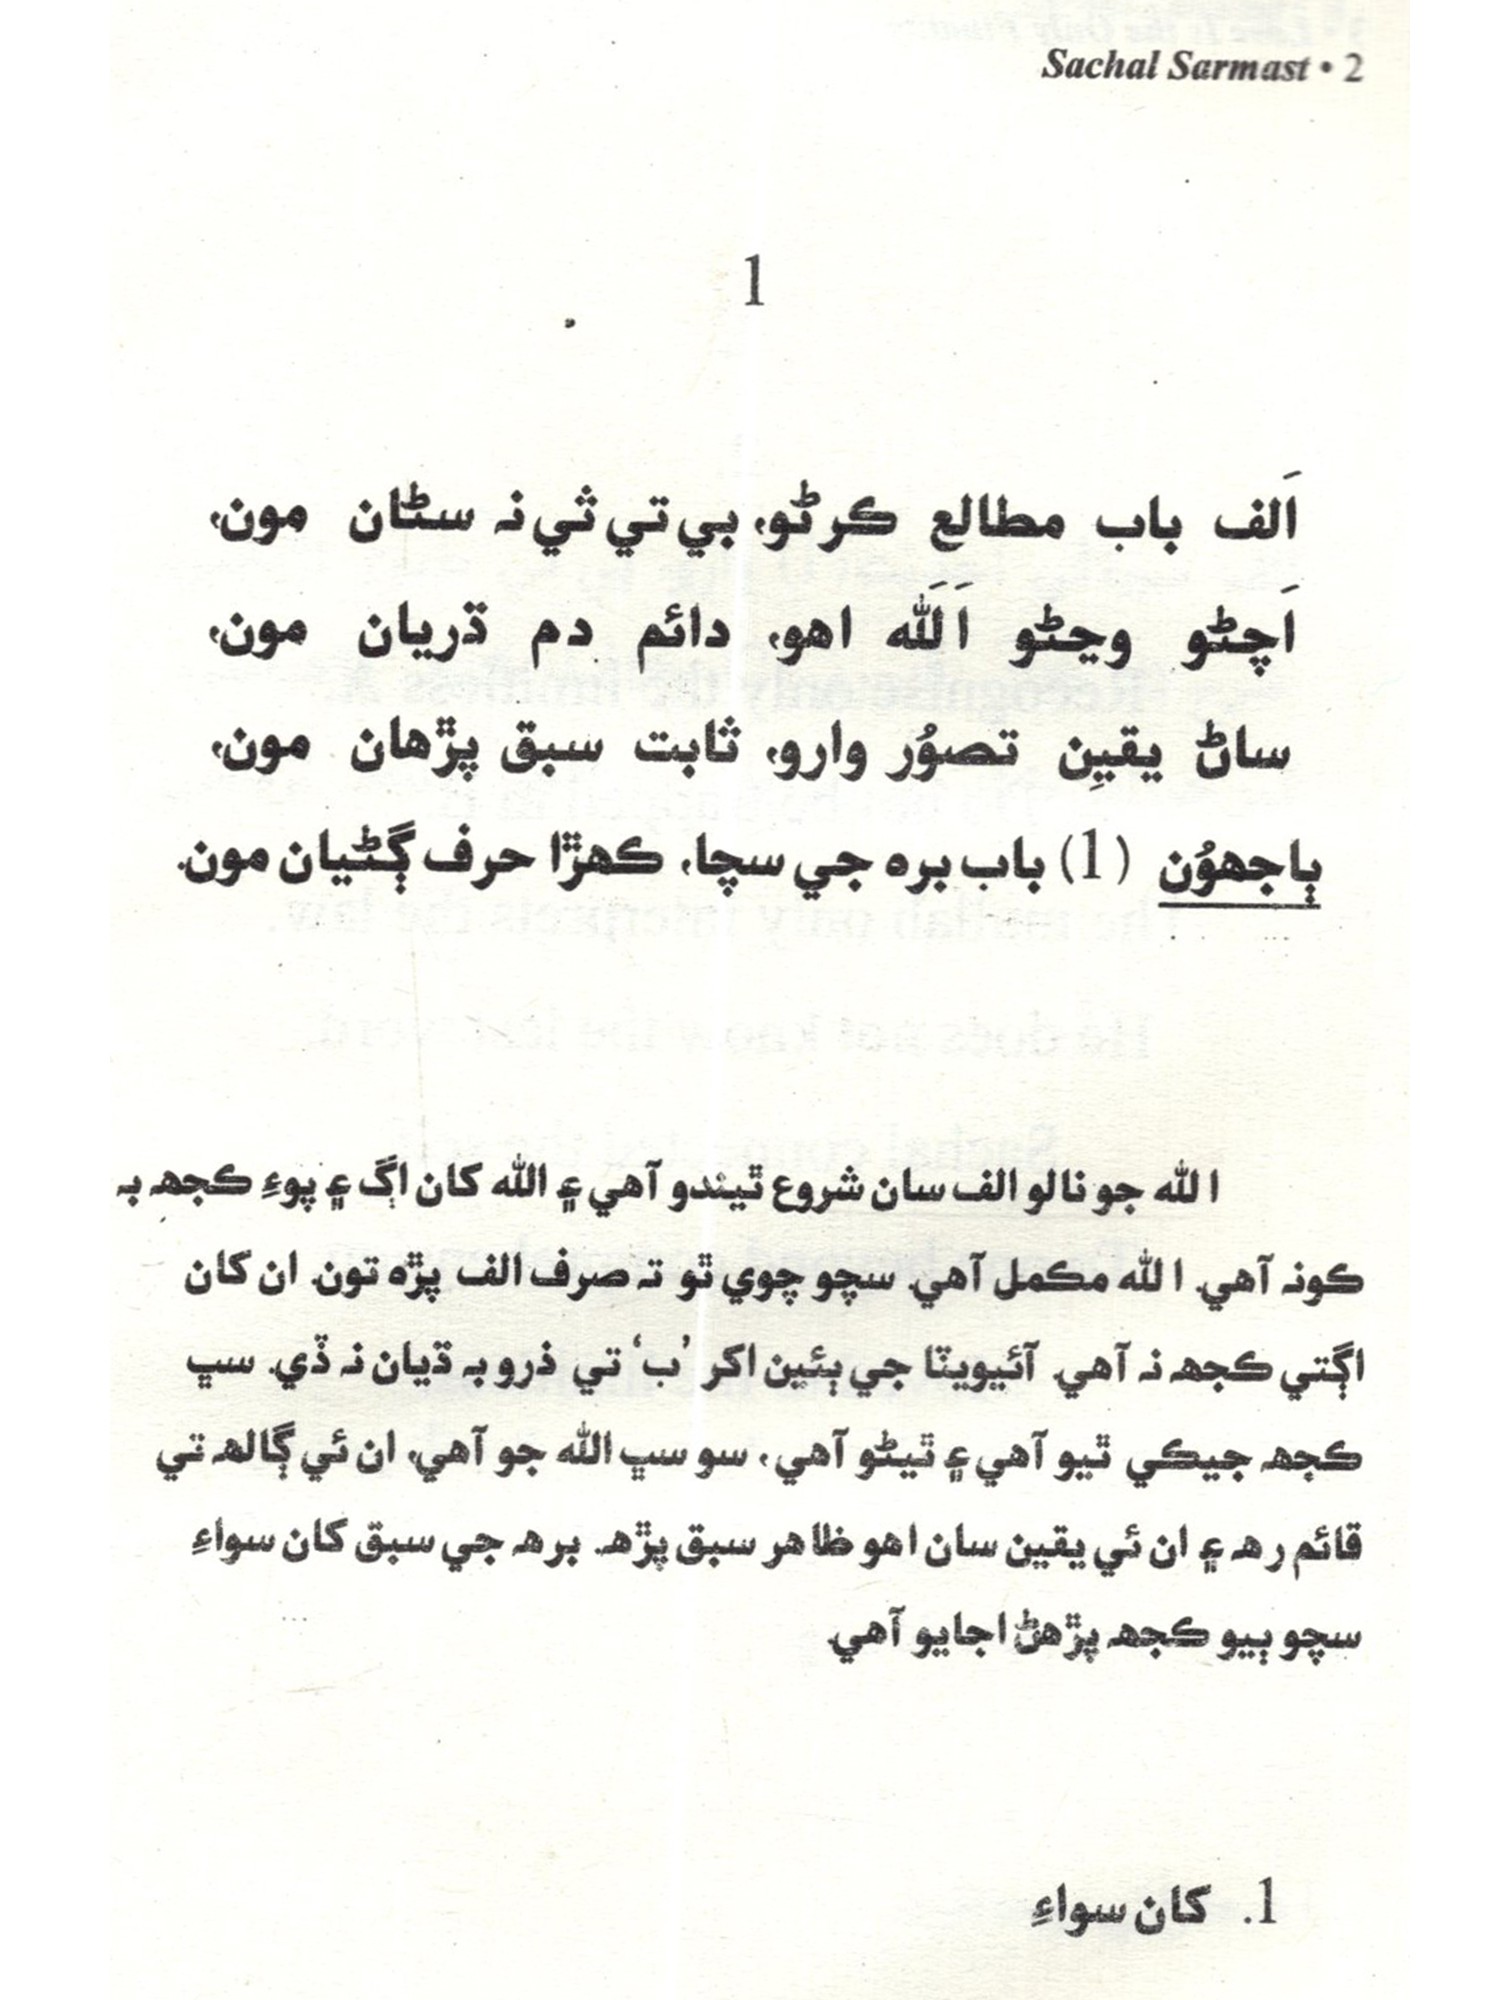 Sachal Sarmast • 2
1
اَلف باب مطالع ڪرڻو، بي تي ثي نہ سڻان مون،
اَچڻو وڃڻو اَلَله اهو، دائم دم ڌريان مون،
ساڻ يقينِ تصوُر وارو، ثابت سبق پڙهان مون،
ٻاجھوُن (1) باب برہ جي سچا، ڪهڙا حرف ڳڻيان مون.
الله جو نالو الف سان شروع ٿيندو آهي ۽ الله کان اڳ ۽ پوءِ ڪجھہ بہ
ڪونہ آهي. الله مڪمل آهي. سچو چوي ٿو تہ صرف الف پڙہ تون. ان کان
اڳتي ڪجھہ نہ آهي. آئيويٽا جي ٻئين اکر ’ب‘ تي ذرو بہ ڌيان نہ ڏي. سڀ
ڪجھہ جيڪي ٿيو آهي ۽ ٿيڻو آهي، سو سڀ الله جو آهي، ان ئي ڳالھہ تي
قائم رھہ ۽ ان ئي يقين سان اهو ظاهر سبق پڙھہ. برھہ جي سبق کان سواءِ
سچو ٻيو ڪجھہ پڙهڻ اجايو آهي.
1. کان سواءِ